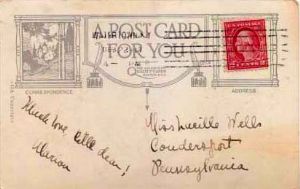 A POST CARD
FOR YOU
WATERTOWN N.Y.
CORRESPONDENCE
ADDRESS
Much love, little dear!
Marion
Miss Lucille Wells
Coudersport
Pennsylvania